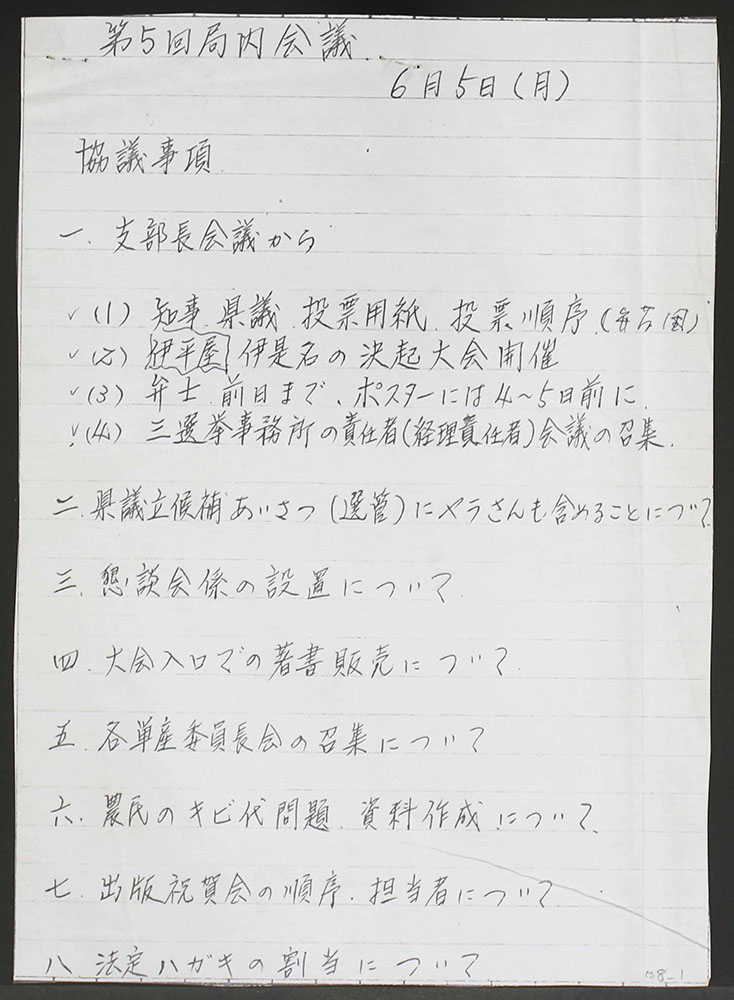 第5回局内会議
6月5日(月)
協議事項
一、支部長会議から
✓(1) 知事、県議、投票用紙、投票順序(宮古国)
✓(2) 伊平屋 伊是名の決起大会開催
✓(3) 弁士 前日まで、ポスターには4〜5日前に
✓(4) 三選挙事務所の責任者(経理責任者)会議の召集
二、県議立候補あいさつ(選管)にヤラさんも含めることについて
三、懇談会係の設置について
四、大会入口での著書販売について
五、各単産委員長会の召集について
六、農民のキビ代問題、資料作成について
七、出版祝賀会の順序、担当者について
八、法定ハガキの割当について